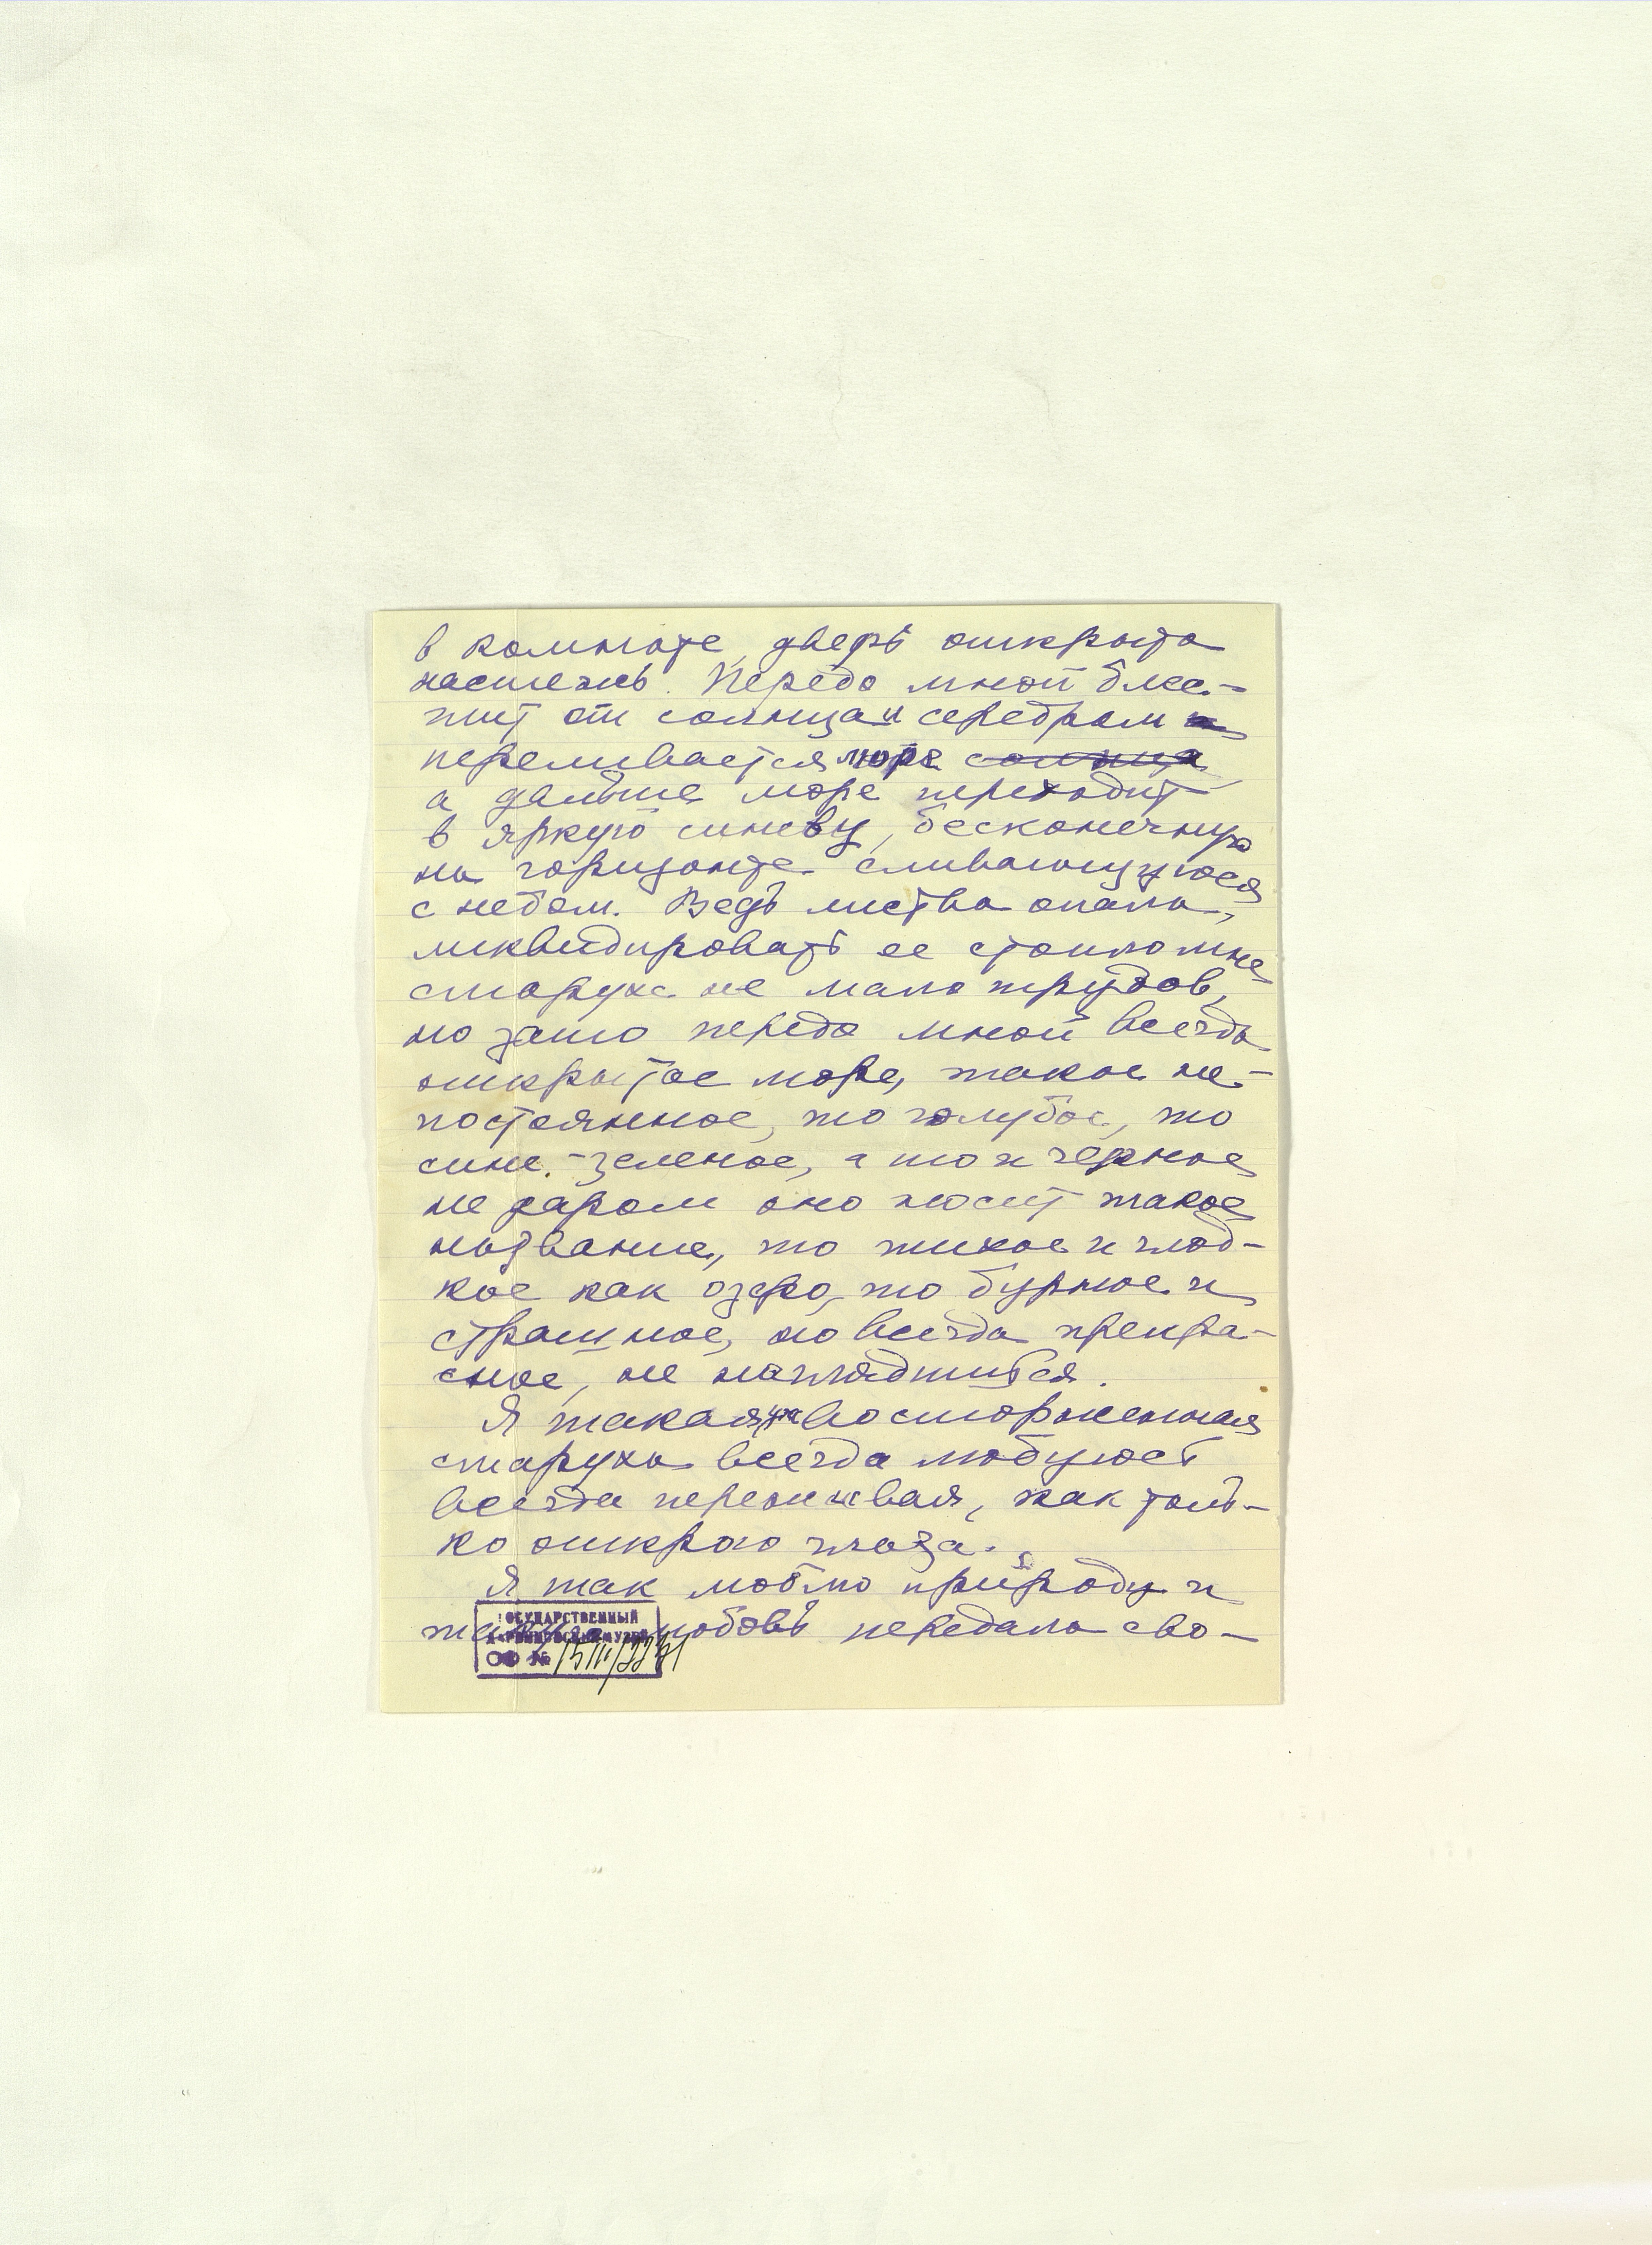 в комнате, дверь открыта
настежь. Передо мной бле-
щит от солнца и серебром
переливается море солнца
а дальше море переходит
в яркую синеву, бесконечную
на горизонте сливающуюся
с небом. Ведь листва опала,
ликвидировать ее стоило мне
старухе не мало трудов,
но зато передо мной всегда
открытое море, такое не-
постоянное, то голубое, то
сине-зеленое, а то и черное
не даром оно носит такое
название, то тихое и глад-
кое как озеро, то бурное и
страшное, но всегда прекра-
сное, не наглядишься.
Я такая уж восторженная
старуха всегда любуюсь
всегда переживая, как толь-
ко открою глаза.
Я так люблю природу и
любовь передала сво-
ГОСУДАРСТВЕННЫЙ
ДАРВИНОВСКИЙ МУЗЕЙ
ОФ №